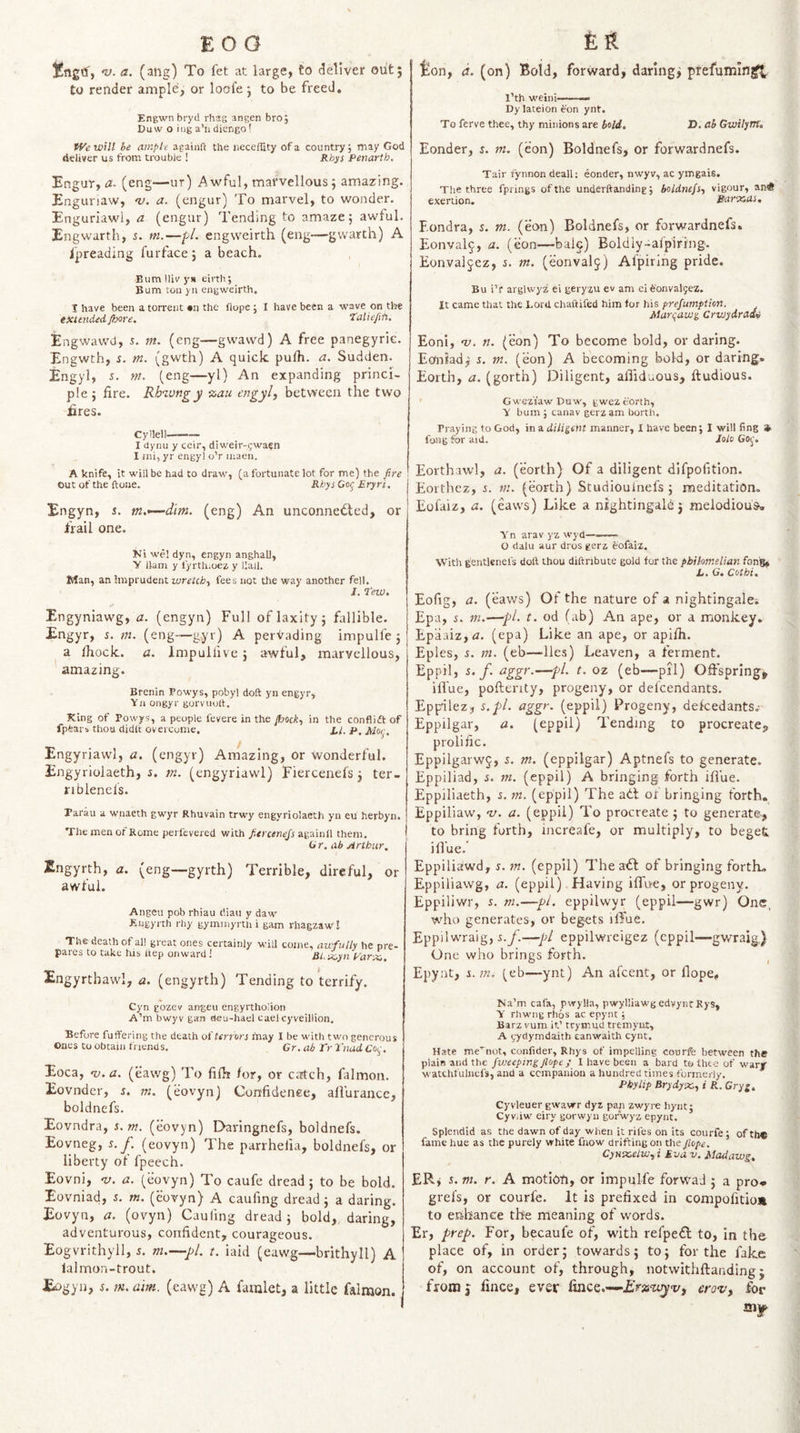 E O G
Engu, v. a. (ang) To ſet at large, to deliver out;
to render ample, or looſe; to be freed.
Engwn bryd rhag angen bro;
Duw o ing a'n diengo!
We will be ample againſt the neceſſity of a country; may God
deliver us from trouble! Rhys Penarth.
Engur, a. (eng—ur) Awful, marvellous; amazing.
Enguriaw, v. a. (engur) To marvel, to wonder.
Enguriawl, a (engur) Tending to amaze; awful.
Engwarth, s. m.—pl. engweirth (eng—gwarth) A
ſpreading ſurface; a beach.
Bum lliv yn eirth;
Bum ton yn engweirth.
I have been a torrent on the ſlope; I have been a wave on the
extended ſhore. Talieſin.
Engwawd, s. m. (eng—gwawd) A free panegyric.
Engwth, s. m. (gwth) A quick puſh. a. Sudden.
Engyl, s. m. (eng—yl) An expanding princi-
ple; fire. Rhwng y zau engyl, between the two
fires.
Cyllell———
I dynu y ceir, diweir-çwaen
I mi, yr engyl o'r maen.
A knife, it will be had to draw, (a fortunate lot for me) the fire
out of the ſtone. Rhys Goç Eryri.
Engyn, s. m.—dim. (eng) An unconnected, or
frail one.
Ni wêl dyn, engyn anghall,
Y llam y ſyrthioez y llall.
Man, an imprudent wretch, ſees not the way another fell.
I. Tew.
Engyniawg, a. (engyn) Full of laxity; fallible.
Engyr, s. m. (eng—gyr) A pervading impulſe;
a ſhock. a. Impulſive; awful, marvellous,
amazing.
Brenin Powys, pobyl doſt yn engyr,
Yn ongyr gorvuoſt.
King of Powys, a people ſevere in the ſhock, in the conflict of
ſpears thou didſt overcome. Ll. P. Moç.
Engyriawl, a. (engyr) Amazing, or wonderful.
Engyriolaeth, s. m. (engyriawl) Fierceneſs; ter-
ribleneſs.
Parâu a wnaeth gwyr Rhuvain trwy engyriolaeth yn eu herbyn.
The men of Rome perſevered with fierceneſs againſt them.
Gr. ab Arthur.
Engyrth, a. (eng—gyrth) Terrible, direful, or
awful.
Angeu pob rhiau diau y daw
Engyrth rhy gymmyrth i gam rhagzaw!
The death of all great ones certainly will come, awfully he pre-
pares to take his ſtep onward! Bl. Varz.
Engyrthawl, a. (engyrth) Tending to terrify.
Cyn gozev angeu engyrtholion
A'm bwyv gan deu-hael cael cyveillion.
Before ſuffering the death of terrors may I be with two generous
ones to obtain friends. Gr. ab Yr Ynad Coç.
Eoca, v. a. (eawg) To fiſh for, or catch, ſalmon.
Eovnder, s. m. (ëovyn) Confidence, aſſurance,
boldneſs.
Eovndra, s. m. (ëovyn) Daringneſs, boldneſs.
Eovneg, s. f. (eovyn) The parrheſia, boldneſs, or
liberty of ſpeech.
Eovni, v. a. (ëovyn) To cauſe dread; to be bold.
Eovniad, s. m. (ëovyn) A cauſing dread; a daring.
Eovyn, a. (ovyn) Cauſing dread; bold, daring,
adventurous, confident, courageous.
Eogvrithyll, s. m.—pl. t. iaid (eawg—brithyll) A
ſalmon-trout.
Eogyn, s. m. dim. (eawg) A ſamlet, a little ſalmon.
E R
Eon, a. (on) Bold, forward, daring, preſuming.
I'th weini———
Dy lateion ëon ynt.
To ſerve thee, thy minions are bold. D. ab Gwilym.
Eonder, s. m. (ëon) Boldneſs, or forwardneſs.
Tair fynnon deall: ëonder, nwyv, ac ymgais.
The three ſprings of the underſtanding; boldneſs, vigour, and
exertion. Barzas.
Eondra, s. m. (ëon) Boldneſs, or forwardneſs.
Eonvalç, a. (ëon—balç) Boldly-aſpiring.
Eonvalçez, s. m. (ëonvalç) Aſpiring pride.
Bu i'r arglwyz ei geryzu ev am ei ëonvalçez.
It came that the Lord chaſtiſed him for his preſumption.
Marçawg Crwydrad.
Eoni, v. n. (ëon) To become bold, or daring.
Eoniad, s. m. (ëon) A becoming bold, or daring.
Eorth, a. (gorth) Diligent, aſſiduous, ſtudious.
Gweziaw Duw, gwez ëorth,
Y bum; canav gerz am borth.
Praying to God, in a diligent manner, I have been; I will ſing a
ſong for aid. Iolo Goç.
Eorthawl, a. (ëorth) Of a diligent diſpoſition.
Eorthez, s. m. (ëorth) Studiouſneſs; meditation.
Eoſaiz, a. (ëaws) Like a nightingale; melodious.
Yn arav yz wyd———
O dalu aur dros gerz ëoſaiz.
With gentleneſs doſt thou diſtribute gold for the philomelian ſong.
L. G. Cothi.
Eoſig, a. (ëaws) Of the nature of a nightingale.
Epa, s. m.—pl. t. od (ab) An ape, or a monkey.
Epäaiz, a. (epa) Like an ape, or apiſh.
Eples, s. m. (eb—lles) Leaven, a ferment.
Eppil, s. f. aggr.—pl. t. oz (eb—pil) Offspring,
iſſue, poſterity, progeny, or deſcendants.
Eppilez, s. pl. aggr. (eppil) Progeny, deſcedants.
Eppilgar, a. (eppil) Tending to procreate,
prolific.
Eppilgarwç, s. m. (eppilgar) Aptneſs to generate.
Eppiliad, s. m. (eppil) A bringing forth iſſue.
Eppiliaeth, s. m. (eppil) The act of bringing forth.
Eppiliaw, v. a. (eppil) To procreate; to generate,
to bring forth, increaſe, or multiply, to beget
iſſue.
Eppiliawd, s. m. (eppil) The act of bringing forth.
Eppiliawg, a. (eppil) Having iſſue, or progeny.
Eppiliwr, s. m.—pl. eppilwyr (eppil—gwr) One
who generates, or begets iſſue.
Eppilwraig, s. f.—pl eppilwreigez (eppil—gwraig)
One who brings forth.
Epynt, s. m. (eb—ynt) An aſcent, or ſlope.
Na'm caſa, pwylla, pwylliawg edvynt Rys,
Y rhwng rhôs ac epynt;
Barz vum it' trymud tremynt,
A çydymdaith canwaith cynt.
Hate me not, conſider, Rhys of impelling courſe between the
plain and the ſweeping ſlope; I have been a bard to thee of wary
watchfulneſs, and a companion a hundred times formerly.
Phylip Brydyz, i R. Gryg.
Cyvleuer gwawr dyz pan zwyre hynt;
Cyvliw eiry gorwyn gorwyz epynt.
Splendid as the dawn of day when it riſes on its courſe; of the
ſame hue as the purely white ſnow drifting on the ſlope.
Cynzelw, i Eva v. Madawg.
ER, s. m. r. A motion, or impulſe forwad; a pro-
greſs, or courſe. It is prefixed in compoſition
to enhance the meaning of words.
Er, prep. For, becauſe of, with reſpect to, in the
place of, in order; towards; to; for the ſake
of, on account of, through, notwithſtanding;
from; ſince, ever ſince.—Erzwyv, erov, for
my